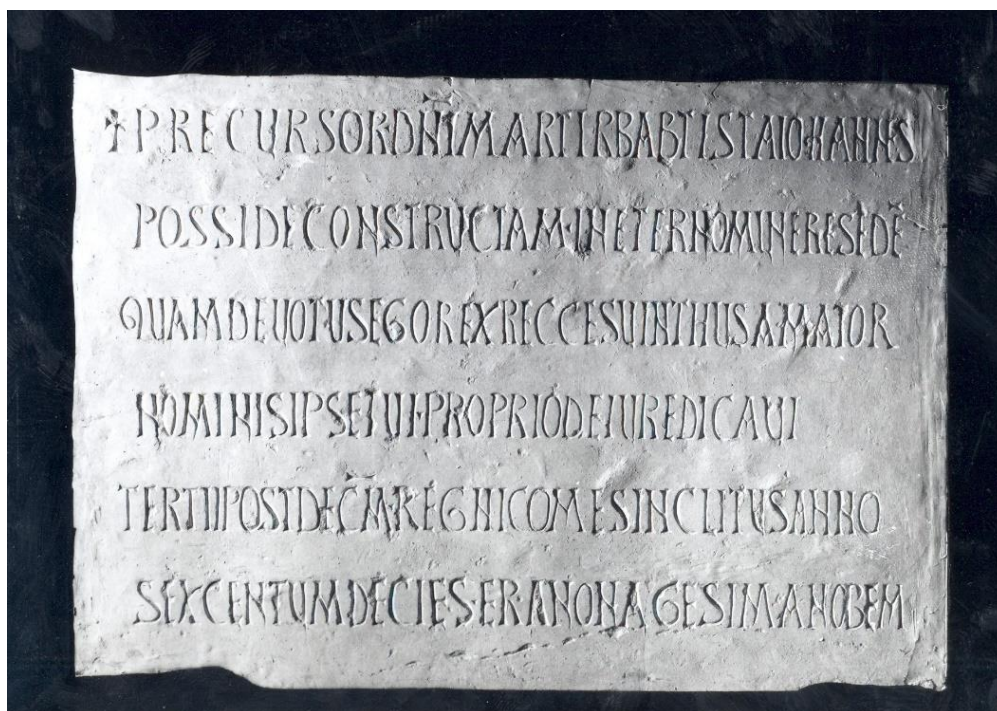 ✝PRECURSORDNIMARTIRBABTISTAIOHANNS
POSSIDECONSTRUCTAMINETERNOMUNERESEDE
QUAMDEUOTUSEGOREXRECCESUINTHUSAMATOR
NOMINISIPSETUIPROPRIODEIUREDICAUI
TERTIIPOSTDECMREGNICOMESINCLITUSANNO
SEXCENTUMDECIESERANONAGESIMANOBEM